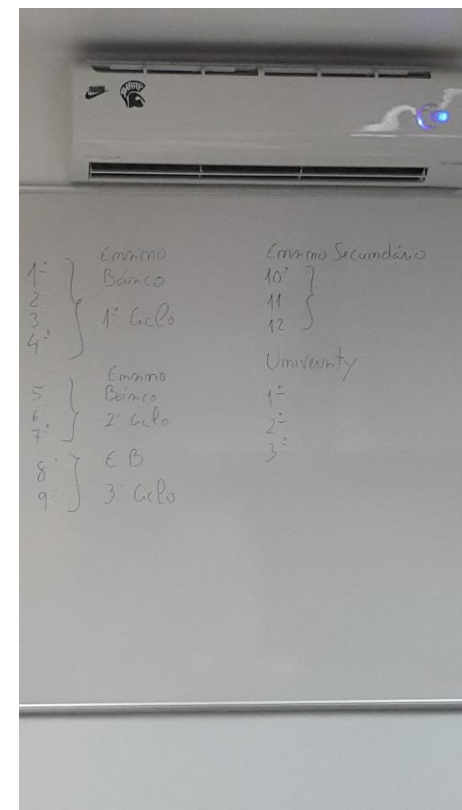 1º
2
3
4º
Ensino
Básico
1º Ciclo
5
6
7º
Ensino
Básico
2º Ciclo
8º
9º
EB
3º Ciclo
Ensino Secundário
10º
11
12
University
1º
2º
3º